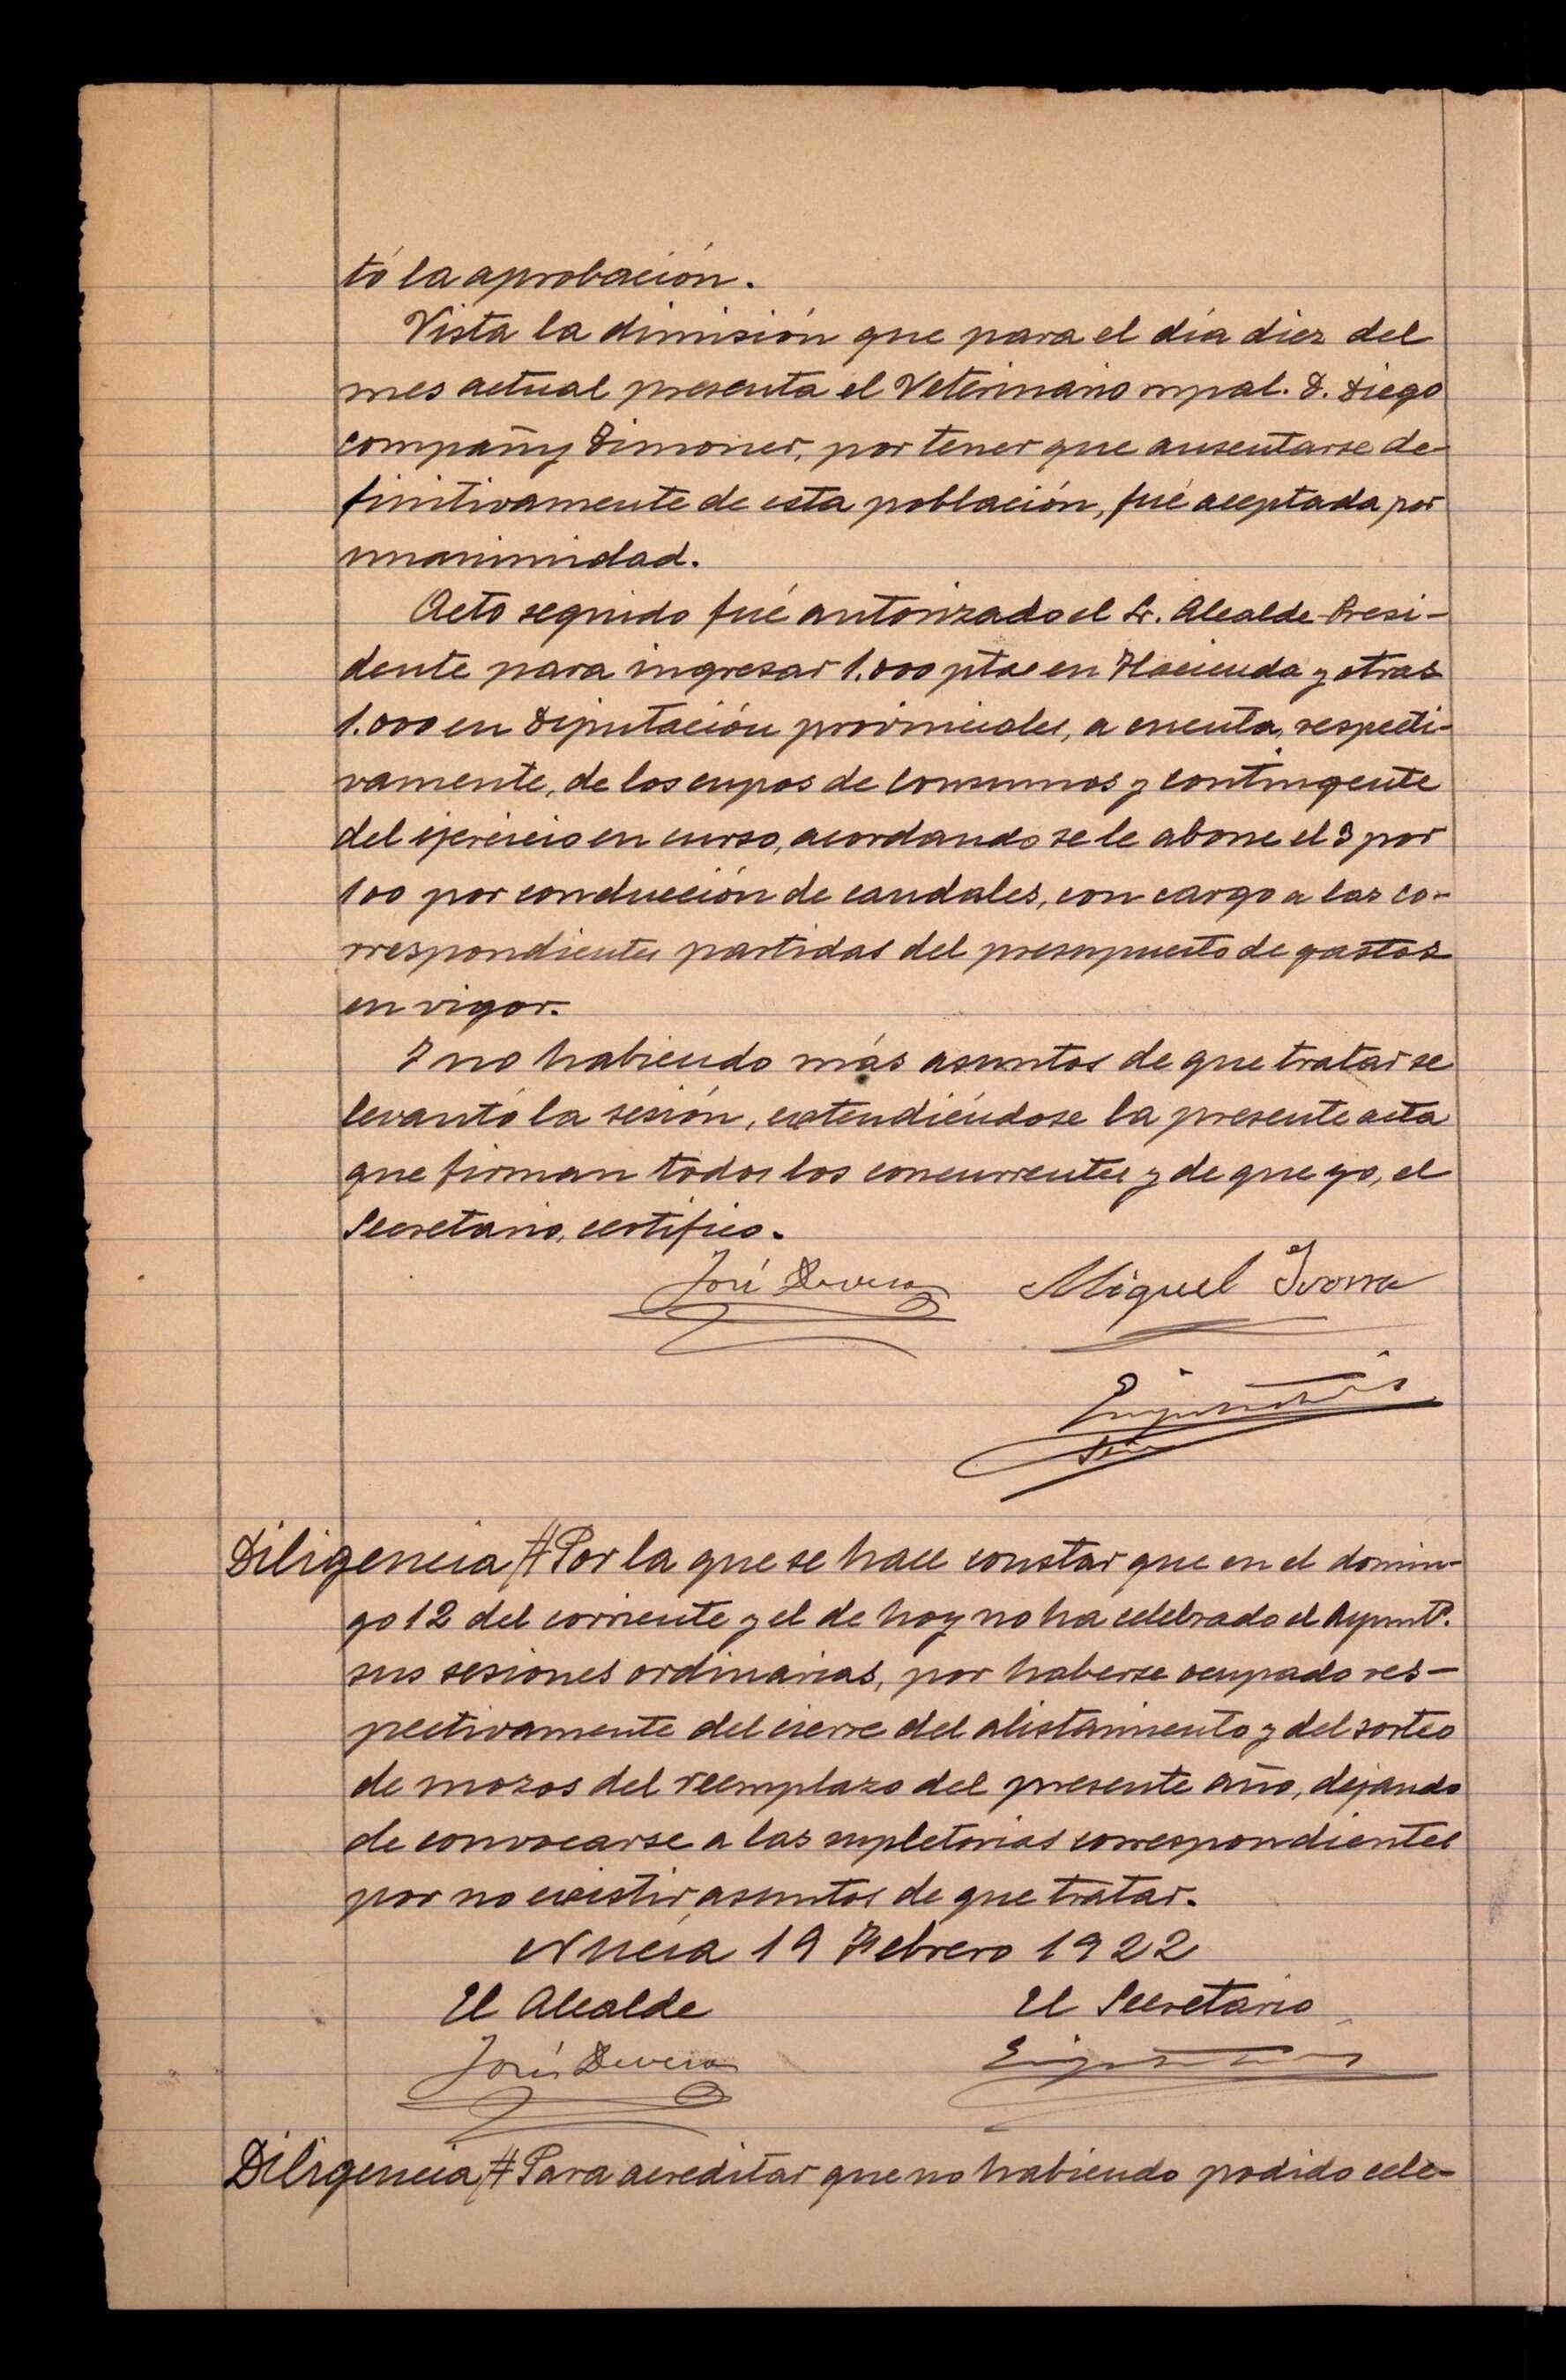 tó la aprobación.
Vista la dimisión que para el día diez del
mes actual presenta el Veterinario mpal. D. Diego
Compañy Simoner, por tener que ausentarse de-
finitivamente de esta población, fué aceptada por
unanimidad.
Acto seguido fué autorizado el Sr. Alcalde-Presi-
dente para ingresar 1.000 ptas en Hacienda y otras
1.000 en Diputación provinciales, a cuenta, respecti-
vamente, de los cupos de consumos y contingente
del ejercicio en curso, acordando se le abone el 3 por
100 por conducción de caudales, con cargo a las co-
rrespondientes partidas del presupuesto de gastos
en vigor.
Y no habiendo más asuntos de que tratar se
levantó la sesión, extendiéndose la presente acta
que firman todos los concurrentes y de que yo, el
Secretario, certifico.
José Devesa Miguel Ivorra
Diligencia # Por la que se hace constar que en el domin-
go 12 del corriente y el de hoy no ha celebrado el Ayuntº.
sus sesiones ordinarias, por haberse ocupado res-
pectivamente del cierre del alistamiento y del sorteo
de mozos del reemplazo del presente año, dejando
de convocarse a las supletorias correspondientes
por no existir asuntos de que tratar.
Nucía 19 Febrero 1922
El Alcalde El Secretario
José Devesa
Diligencia # Para acreditar que no habiendo podido cele-